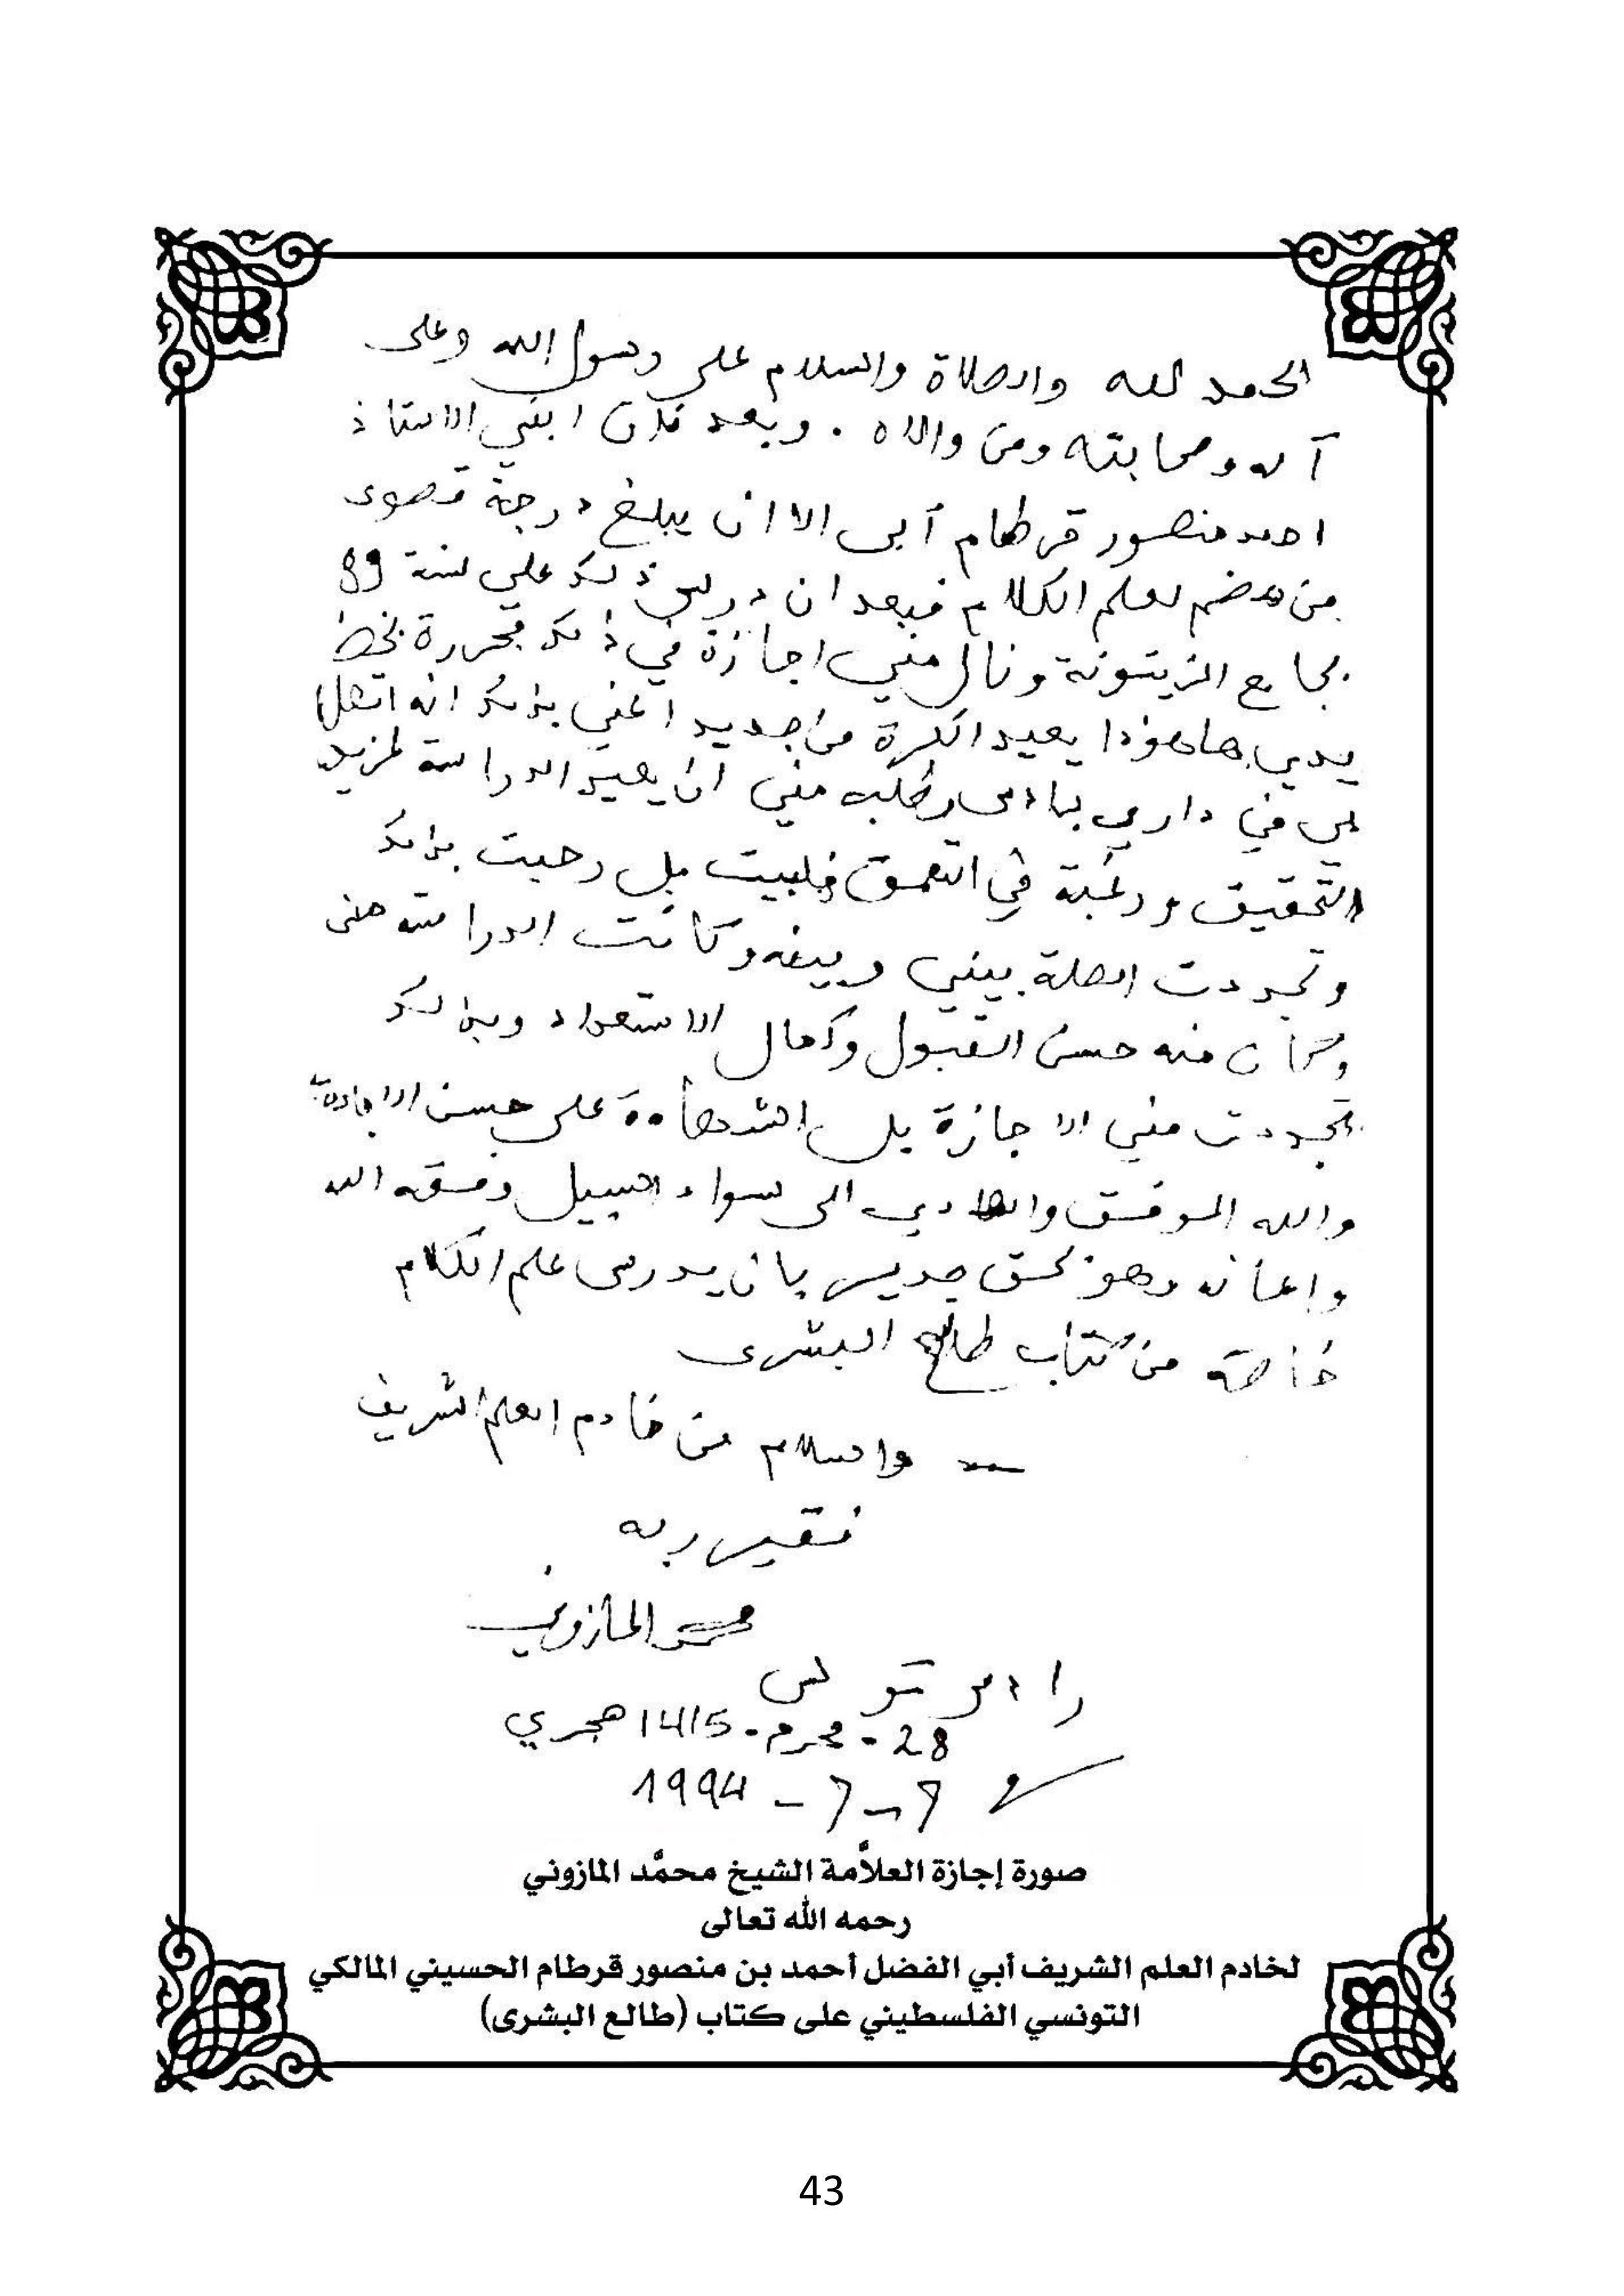 الحمد لله والصلاة والسلام على رسول الله وعلى
آله وصحابته ومن والاه . وبعد فان ابني الاستاذ
احمد منصور قرطام آبى الا ان يبلغ درجة قصوى
من هضم لعلم الكلام فبعد ان درس ذلك علي سنة 89
بجامع الزيتونة ونال مني اجازة في ذلك محررة بخط
يدي هاهوذا يعيد الكرة من جديد اعني بذلك انه اتصل
بي في داري برادس وطلب مني ان يعيد الدراسة لمزيد
التحقيق ورغبة في التعمق فلبيت بل رحبت بذلك
وتجددت الصلة بيني وبينه وكانت الدراسة مني
وكان منه حسن القبول وكمال الاستعداد وبذلك
تجددت مني الاجازة بل على حسن الاجادة
والله الموفق والهادي الى سواء السبيل وفقه الله
واعانه وهو بحق جدير بان يدرس علم الكلام
خاصة من كتاب طالع البشرى
والسلام من خادم العلم الشريف
فقير ربه
محمد المازوني
رادس تونس
28 - محرم - 1415 هجري
7 - 7 - 1994
صورة إجازة العلاَّمة الشيخ محمَّد المازوني
رحمه الله تعالى
لخادم العلم الشريف أبي الفضل أحمد بن منصور قرطام الحسيني المالكي
التونسي الفلسطيني على كتاب (طالع البشرى)
43